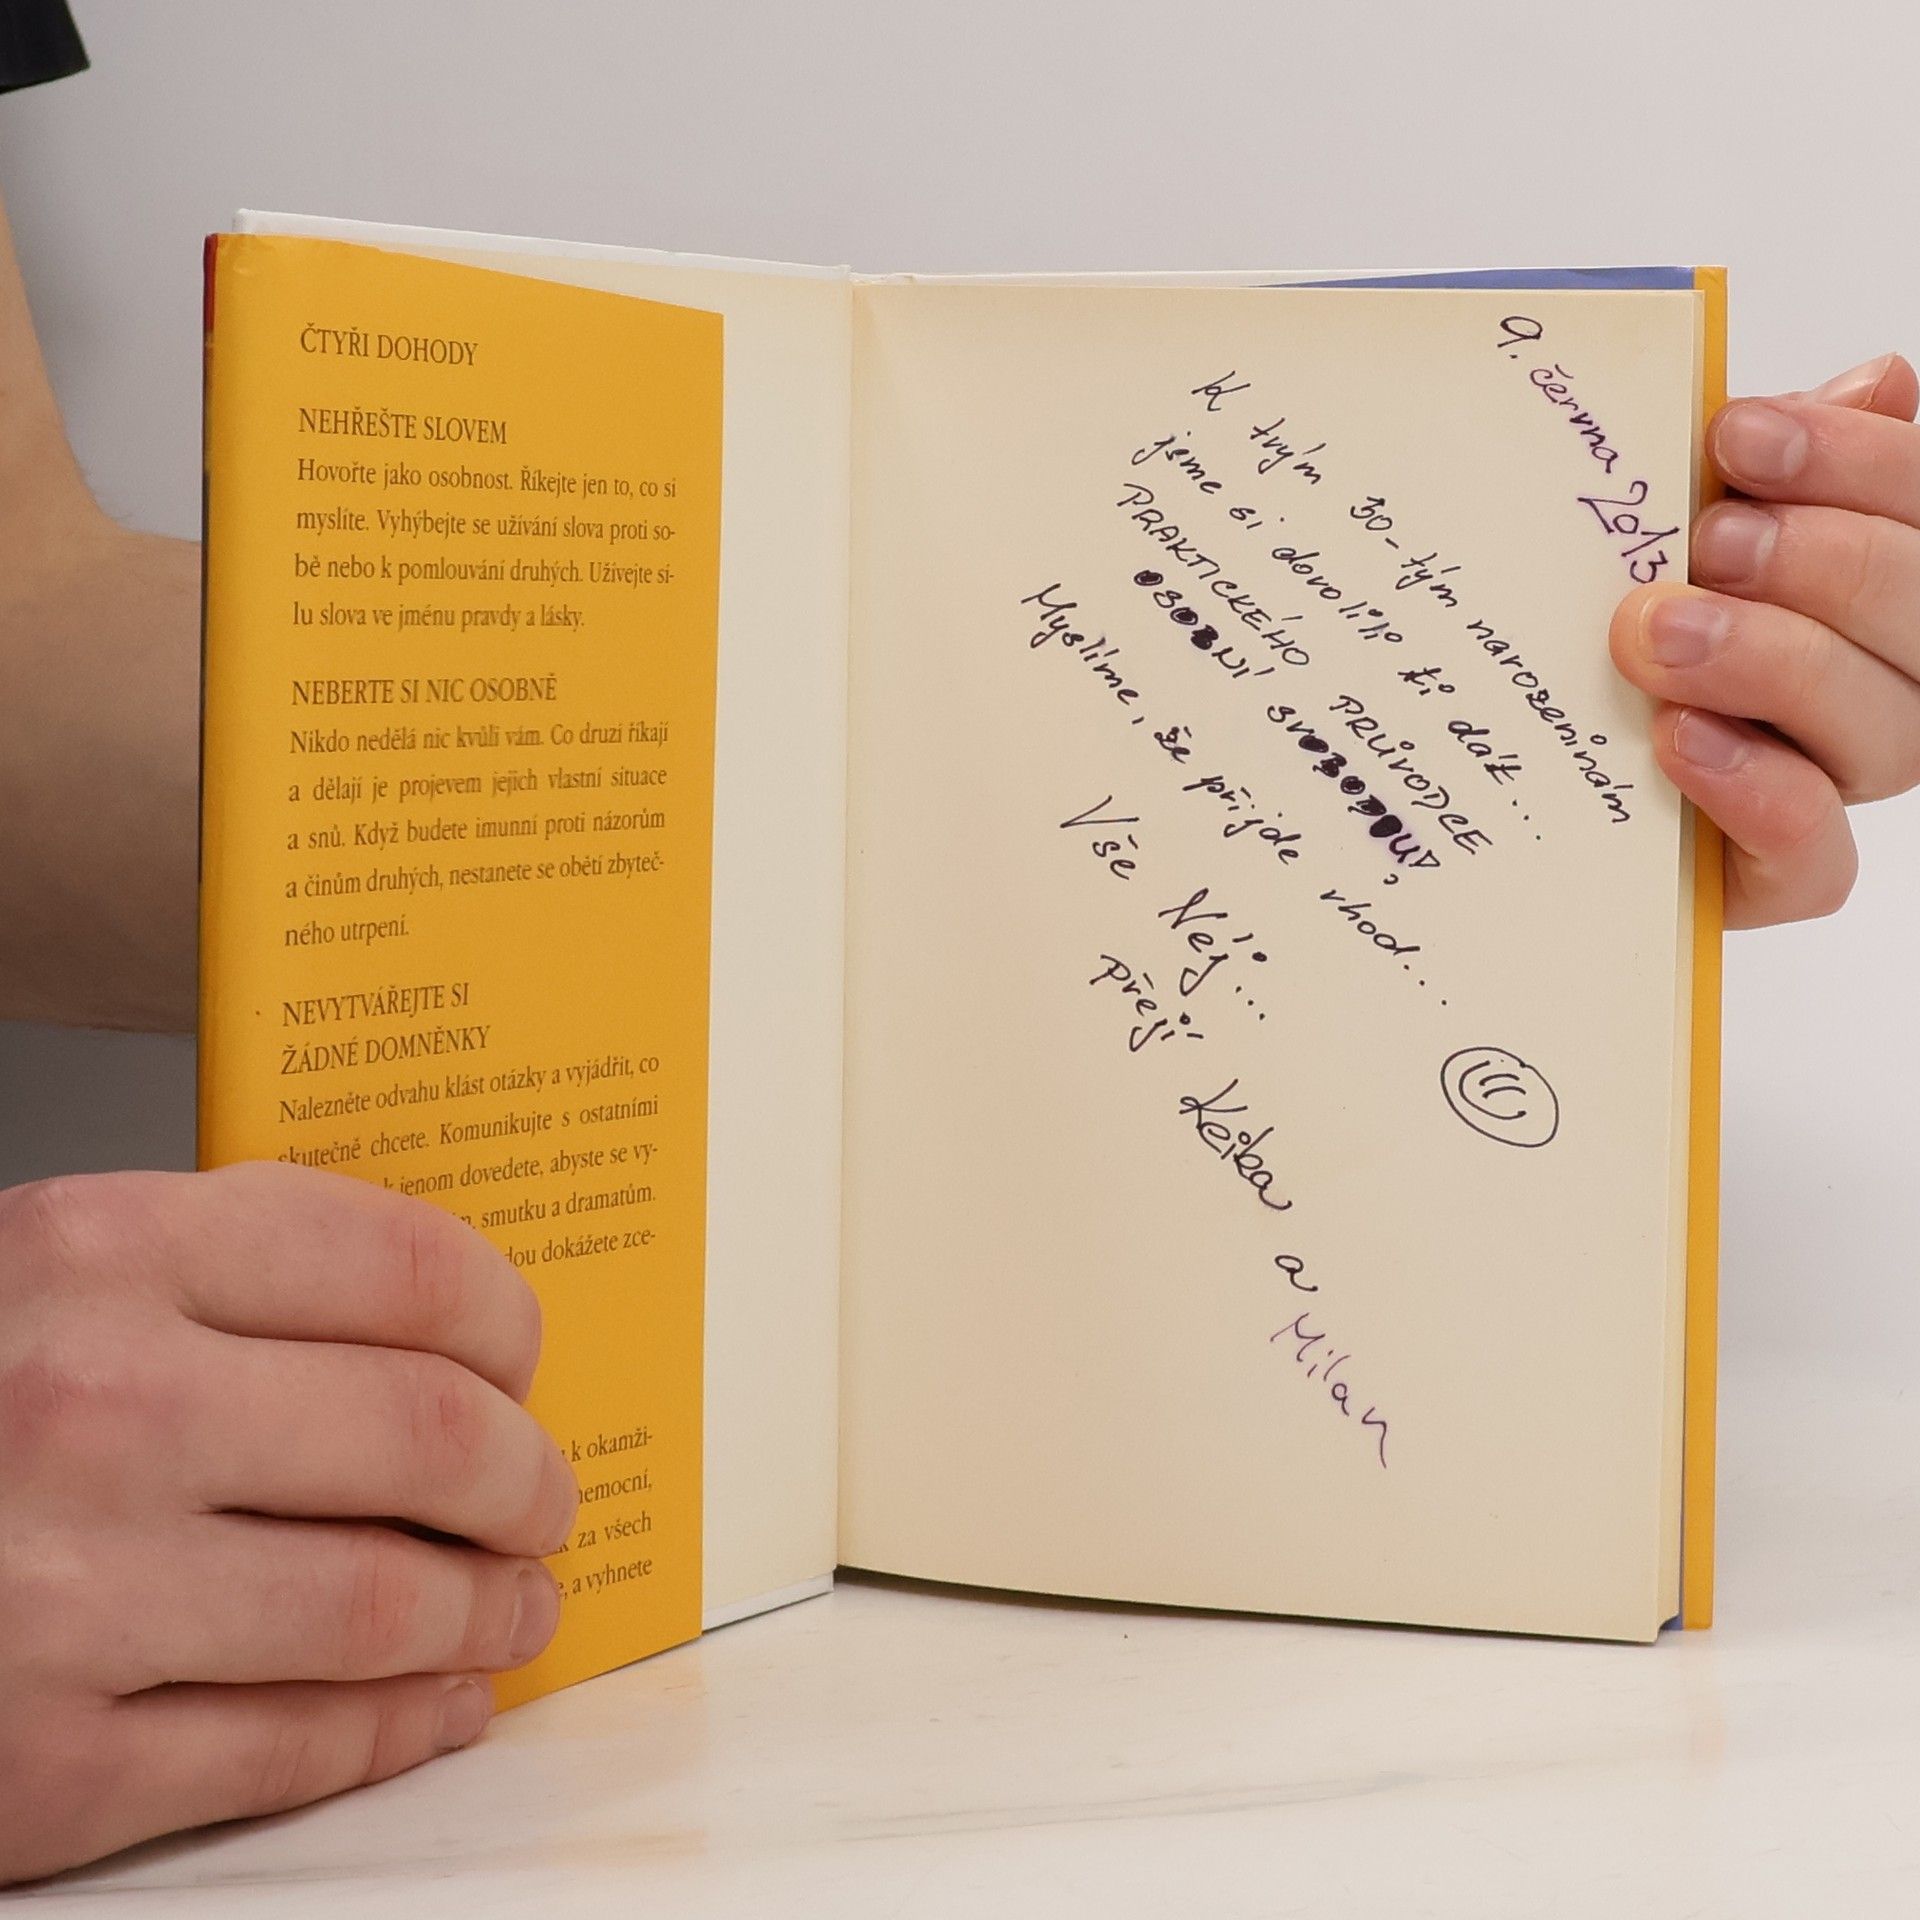 ČTYŘI DOHODY
NEHŘEŠTE SLOVEM
Hovořte jako osobnost. Říkejte jen to, co si
myslíte. Vyhýbejte se užívání slova proti so-
bě nebo k pomlouvání druhých. Užívejte sí-
lu slova ve jménu pravdy a lásky.
NEBERTE SI NIC OSOBNĚ
Nikdo nedělá nic kvůli vám. Co druzí říkají
a dělají je projevem jejich vlastní situace
a snů. Když budete imunní proti názorům
a činům druhých, nestanete se obětí zbyteč-
ného utrpení.
NEVYTVÁŘEJTE SI
ŽÁDNÉ DOMNĚNKY
Nalezněte odvahu klást otázky a vyjádřit, co
skutečně chcete. Komunikujte s ostatními
jenom dovedete, abyste se vy-
smutku a dramatům.
dokážete zce-
k okamži-
za všech
a vyhnete
9. června 2013
K tvým 30-tým narozeninám
jsme si dovolili ti dát...
PRAKTICKÉHO PRŮVODCE
OSOBNÍ SVOBODOU!
Myslíme, že přijde vhod...
Vše Nej...
přejí
a Milan